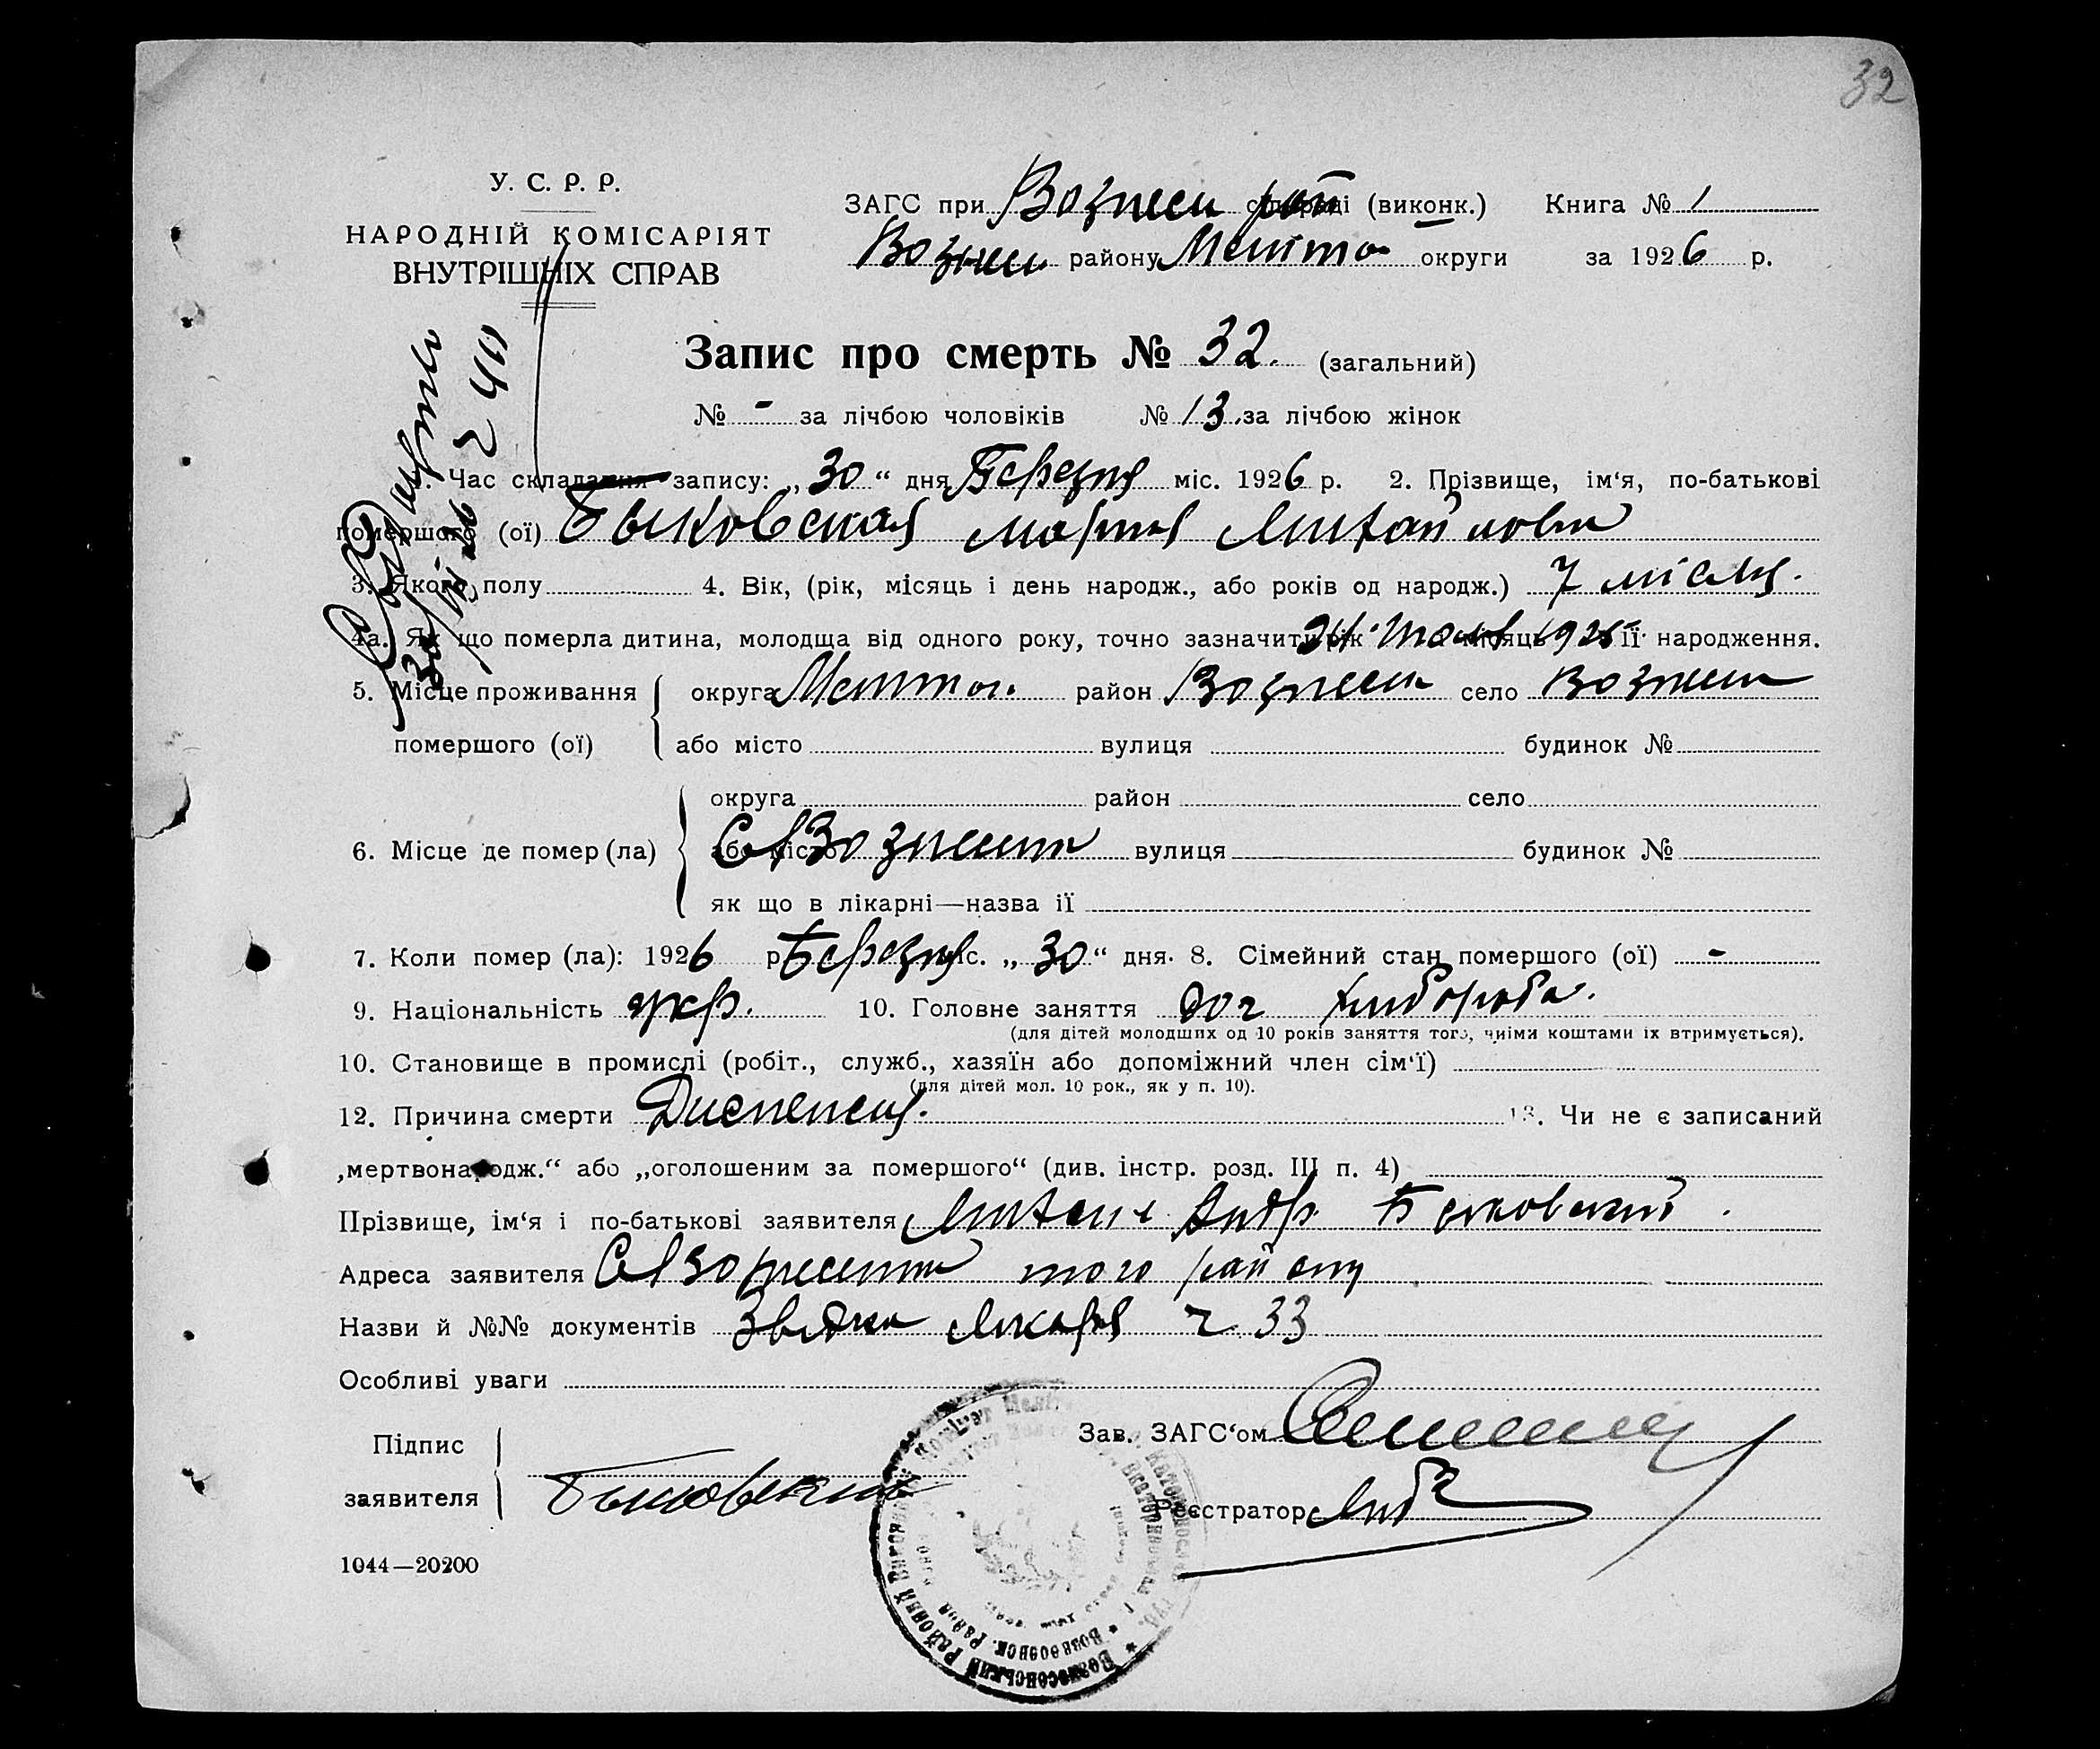 32
У. С. Р. Р.
НАРОДНІЙ КОМІСАРІЯТ
ВНУТРІШНІХ СПРАВ
ЗАГС при Вознесен рай (виконк.) Книга № 1
Вознесен району Меліто округи за 1926 р.
Запис про смерть № 32. (загальний)
№ - за лічбою чоловіків № 13 за лічбою жінок
Час складання запису: „30“ дня Березня міс. 1926 р. 2. Прізвище, ім‘я, по-батькові
помершого (ої) Быковская Мария Михайловна
3. Якого полу 4. Вік, (рік, місяць і день народж., або років од народж.) 7 місяц.
4а. Як що померла дитина, молодща від одного року, точно зазначити рік місяць 1925 її народження.
5. Місце проживання округа Меліто. район Вознесен село Вознесен
помершого (ої) або місто вулиця будинок №
округа район село
6. Місце де помер (ла) або місто С Вознесен вулиця будинок №
як що в лікарні—назва ії
7. Коли помер (ла): 1926 р. Березня міс. „30“ дня. 8. Сімейний стан помершого (ої) -
9. Національність укр. 10. Головне заняття доч хлибороба.
(для дітей молодших од 10 років заняття того, чиїми коштами їх втримується).
10. Становище в промислі (робіт., служб., хазяїн або допоміжний член сім‘ї)
(для дітей мол. 10 рок., як у п. 10).
12. Причина смерти Диспепсия. 13. Чи не є записаний
„мертвонародж.“ або „оголошеним за помершого“ (див. інстр. розд. III п. 4)
Прізвище, ім‘я і по-батькові заявителя Михаил Андр Быковский.
Адреса заявителя С Вознесенка того району
Назви й №№ документів Звідка Лікаря ч 33
Особливі уваги
Підпис
заявителя Быковский
Зав. ЗАГС‘ом
Реєстратор
1044—20200